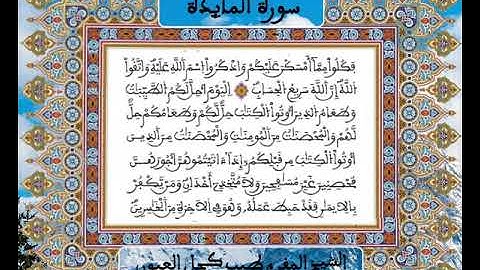 سورة المايدة
فَكُلُوا مِمَّا أَمْسَكْنَ عَلَيْكُمْ وَاذْكُرُوا اسْمَ اللَّهِ عَلَيْهِ وَاتَّقُوا
اللَّهَ إِنَّ اللَّهَ سَرِيعُ الْحِسَابِ الْيَوْمَ أُحِلَّ لَكُمُ الطَّيِّبَاتُ
وَطَعَامُ الَّذِينَ أُوتُوا الْكِتَابَ حِلٌّ لَكُمْ وَطَعَامُكُمْ حِلٌّ
لَهُمْ وَالْمُحْصَنَاتُ مِنَ الْمُومِنَاتِ وَالْمُحْصَنَاتُ مِنَ الَّذِينَ
أُوتُوا الْكِتَابَ مِن قَبْلِكُمْ إِذَا ءَاتَيْتُمُوهُنَّ أُجُورَهُنَّ
مُحْصِنِينَ غَيْرَ مُسَافِحِينَ وَلَا مُتَّخِذِي أَخْدَانٍ وَمَنْ يَكْفُرْ
بِالِايمَانِ فَقَدْ حَبِطَ عَمَلُهُ وَهُوَ فِي الَاخِرَةِ مِنَ الْخَاسِرِينَ
طيب كحل العيون